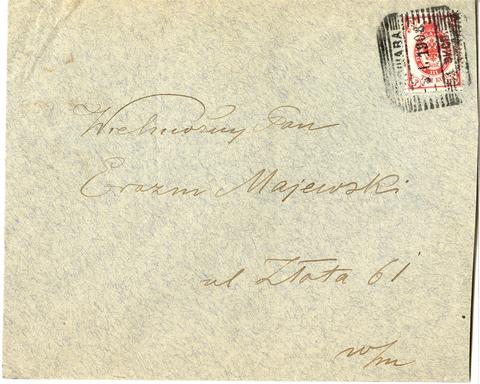 Wielmożny Pan
Erazm Majewski
ul Złota 61
w/m
1903